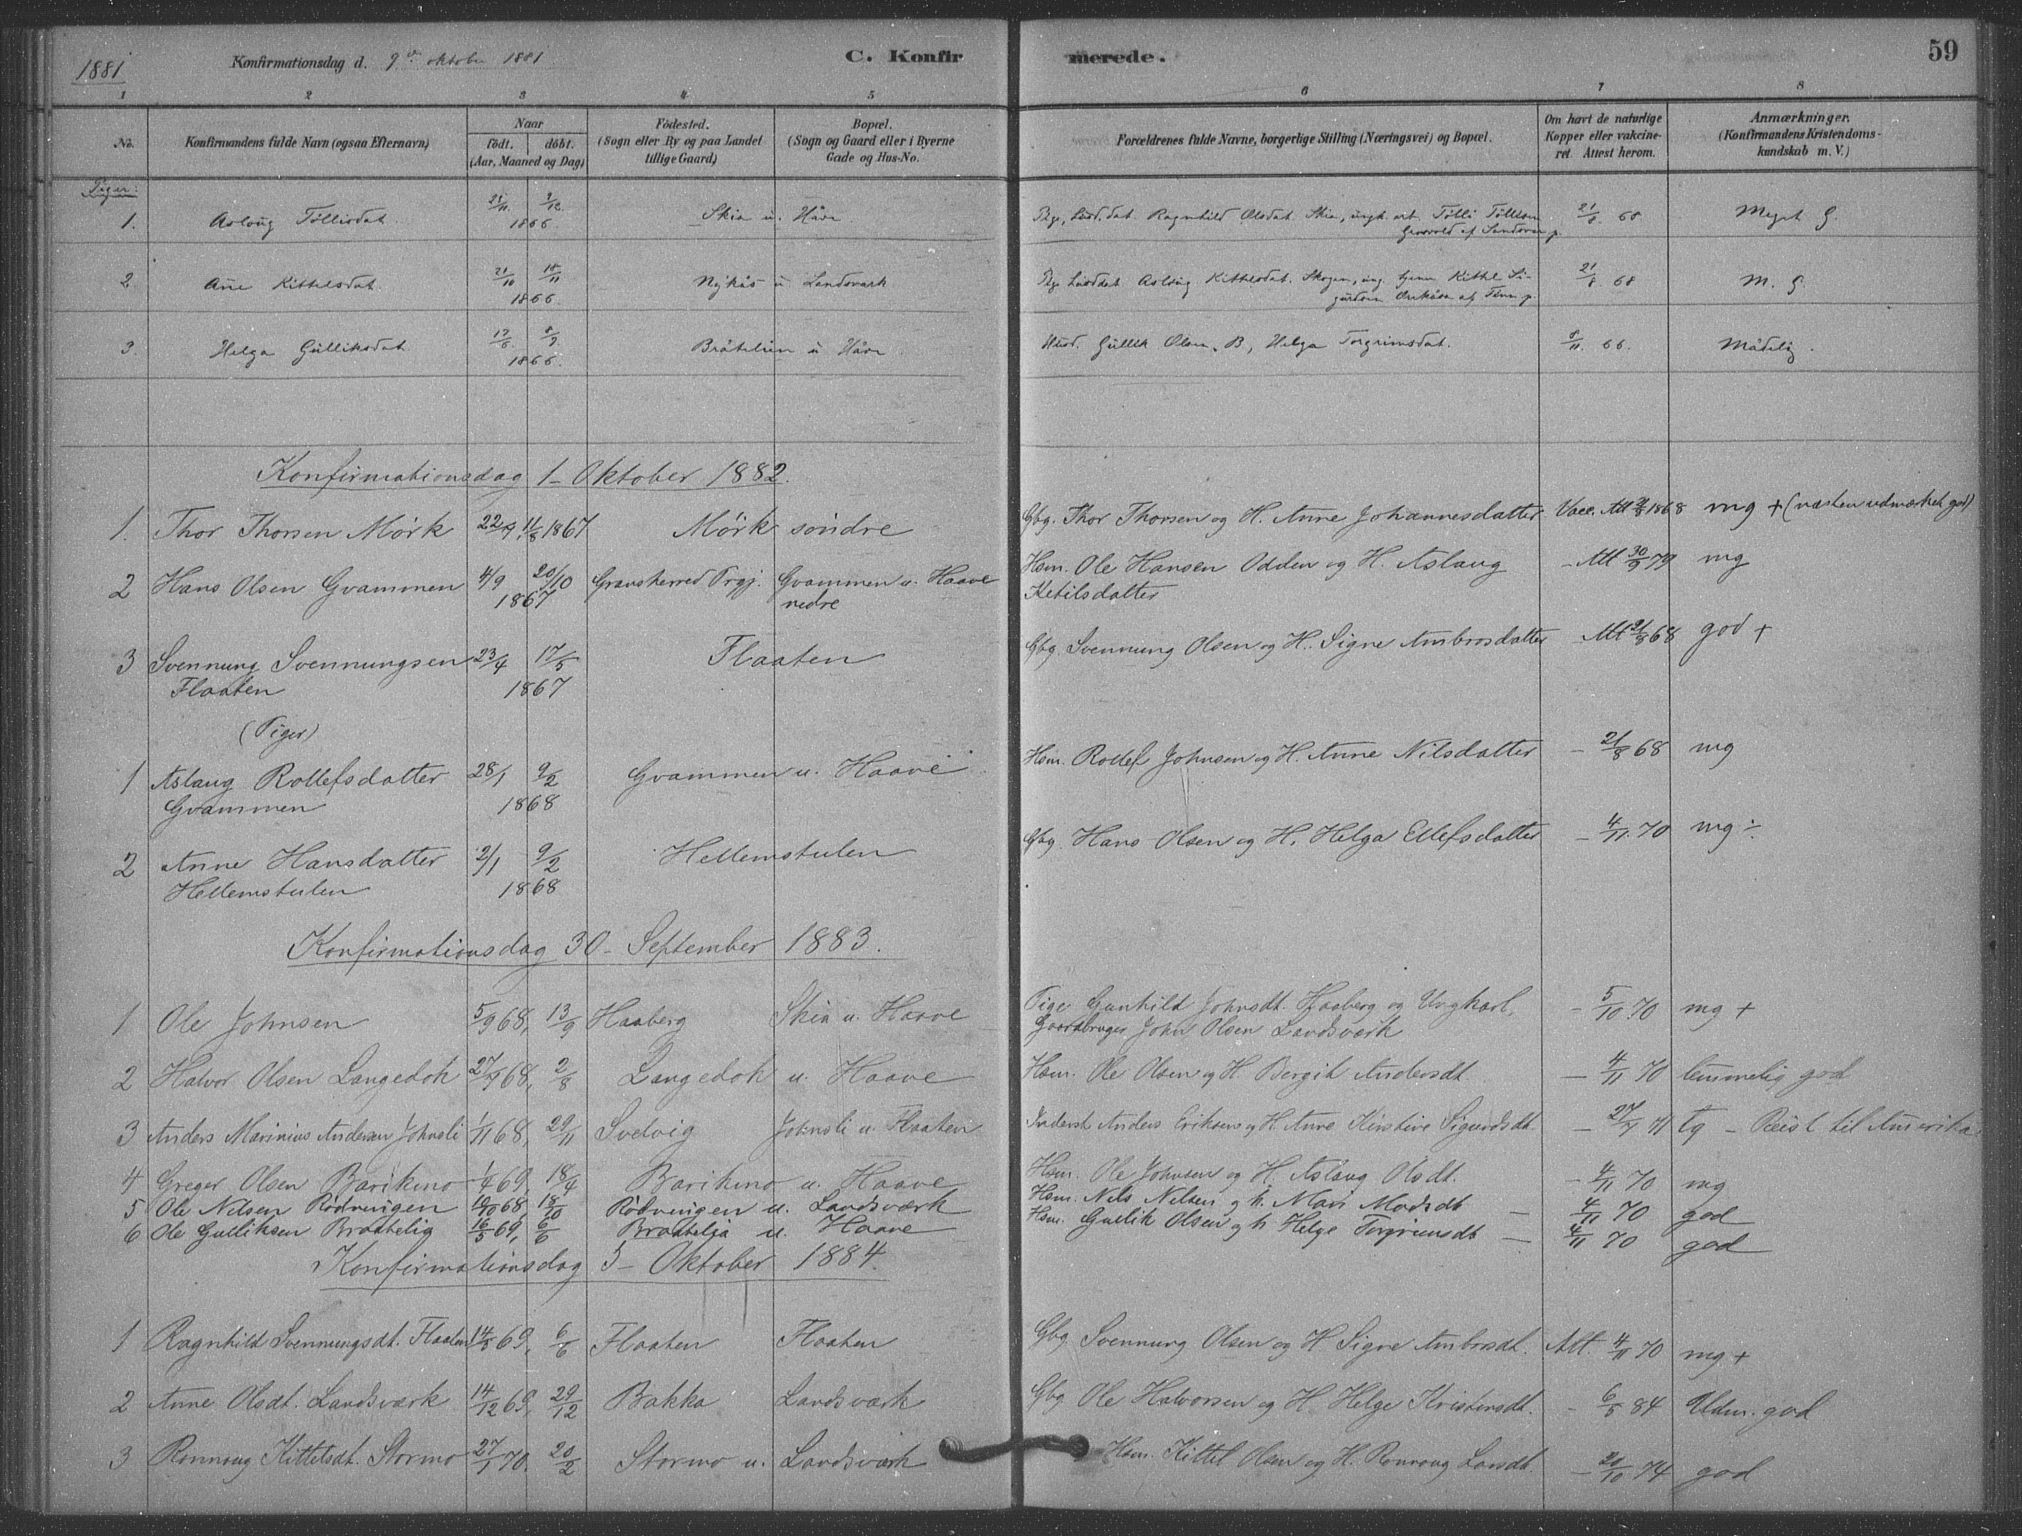 1881
Konfirmationsdag d. 9de oktober 1881
C. Konfirmerede.
59
1 2 3 4 5 6 7 8
No.
Konfirmandens fulde Navn (ogsaa Efternavn)
Naar
födt. döbt.
(Aar, Maaned og Dag)
Födested.
(Sogn eller By og paa Landet
tillige Gaard)
Bopæl.
(Sogn og Gaard eller i Byerne
Gade og Hus-No.
Forældrenes fulde Navne, borgerlige Stilling (Næringsvei) og Bopæl.
Om havt de naturlige
Kopper eller vakcine-
ret. Attest herom.
Anmærkninger.
(Konfirmandens Kristendoms-
kundskab m. V.)
Piger:
1. Asloug Tollisdat. 21/11 9/12 1866 Skia u. Håve Pige, Ragnhild Olsdat. Skia, ungk. Tolli Tollison 21/8 68 Meget G.
2 Ane Kittelsdat. 21/10 18/11 1866. Nykås u Landsvark Pige Asloug Kittelsdat. Skogen, Kittil Si- 21/8 68 M. G
3. Helga Gulliksdat 17/6 8/7 1866. Bråtelien u Håve Husd. Gullik Olsen B, Helga Torgrimsdat. 8/11 66. Mådelig.
Konfirmationsdag 1- Oktober 1882.
1. Thor Thorsen Mörk 22/7 11/8 1867 Mörk söndre Gbg. Thor Thorsen og H. Anne Johannesdatter Vacc. Att 21/8 1868 mg + (næsten udmærket god)
2 Hans Olsen Gvammen 4/9 20/10 1867 Gransherred Prgj. Gvammen u. Haave nedre Hsm. Ole Hansen Odden og H. Aslaug - Att 30/9 79 mg
Ketilsdatter
3 Svennung Svennungsen 23/4 17/5 Flaaten Gbg. Svennung Olsen og H. Signe Ambrosdatter Att 21/8 68 god +
Flaaten 1867
(Piger)
1 Aslaug Rollefsdatter 28/1 9/2 Gvammen u. Haave Hsm. Rollef Johnsen og H. Anne Nilsdatter - 21/8 68 mg
Gvammen 1868
2 Anne Hansdatter 2/1 9/2 Hellemstulen Gbg. Hans Olsen og H. Helga Ellefsdatter - 4/11 70 mg ÷
Hellemstulen 1868
Konfirmationsdag 30- September 1883.
1 Ole Johnsen 5/9 68, 13/9 Haaberg Skia u. Haave Pige Gunhild Johnsdt. Haaberg og Ungkarl, - 5/10 70 mg +
Gaardbruger John Olsen Landsværk
2 Halvor Olsen Langedok 27/7 68, 2/8 Langedok u. Haave Hsm. Ole Olsen og H. Bergit Andersdt. - 4/11 70 temmelig god
3 Anders Marinius Andersen Johnsli 1/11 68, 29/11 Svelvig Johnsli u. Flaaten Inderst Anders Eriksen og H. Anne Kirstine Sigurdsdt. - 27/7 71 tg - Reist til Amerika
4 Greger Olsen Barikmo 1/4 69, 18/4 Barikmo u. Haave Hsm. Ole Johnsen og H. Aslaug Olsdt. - 4/11 70 mg
5 Ole Nilsen Rödningen 10/10 68, 18/10 Rödningen u. Landsværk Hsm. Nils Nilsen og h. Mari Madsdt - 4/11 70 god
6 Ole Gulliksen Braatelig 16/5 69, 6/6 Braatelia u. Haave Hsm. Gullik Olsen og h Helge Torgrimsdt - 4/11 70 god
Konfirmationsdag 5- Oktober 1884.
1 Ragnhild Svennungsdt. Flaaten 14/5 69, 6/6 Flaaten Flaaten Gbg Svennung Olsen og H Signe Ambrosdt. Att. 4/11 70 mg +
2 Anne Olsdt. Landsværk 14/12 69, 29/12 Bakka Landsværk Gbg Ole Halvorsen og H. Helge Kristensdt. - 6/5 84 Udm. god
3 Ronnoug Kittelsdt. Stormo 27/1 70. 20/2 Stormo u. Landsværk Hsm. Kittel Olsen og H. Ronnoug Larsdt. - 20/10 74 god